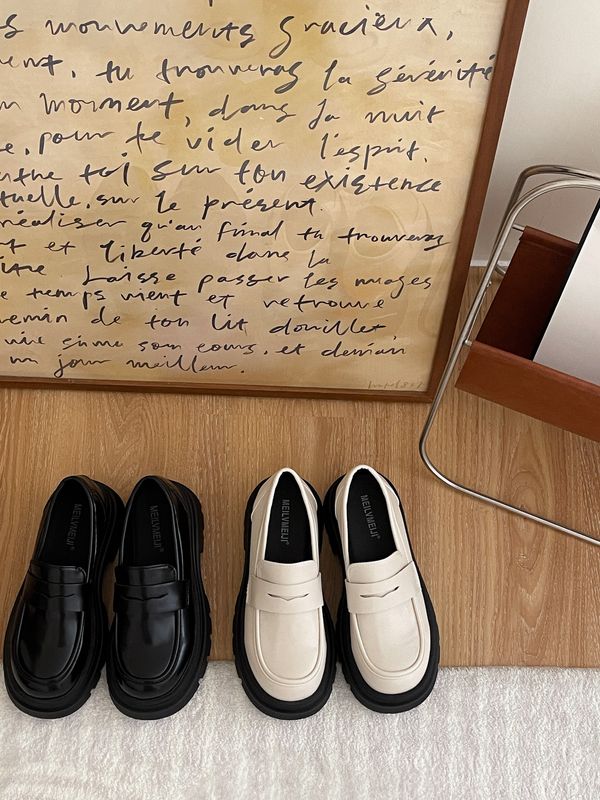 s mouvements gracieux,
ent, tu trouveras la sérénité
n moment, dans la nuit
e, pour te vider l'esprit.
toi sur ton existence
tuelle, sur le présent.
réaliser qu'au final tu trouveras
t et liberté dans la
Laisse passer les nuages
e temps vient et retrouve
hemin de ton lit douillet,
son cours, et demain
un jour meilleur.
MEILVMEIJI
MEILVMEIJI
MEILVMEIJI®
MEILVMEIJI®